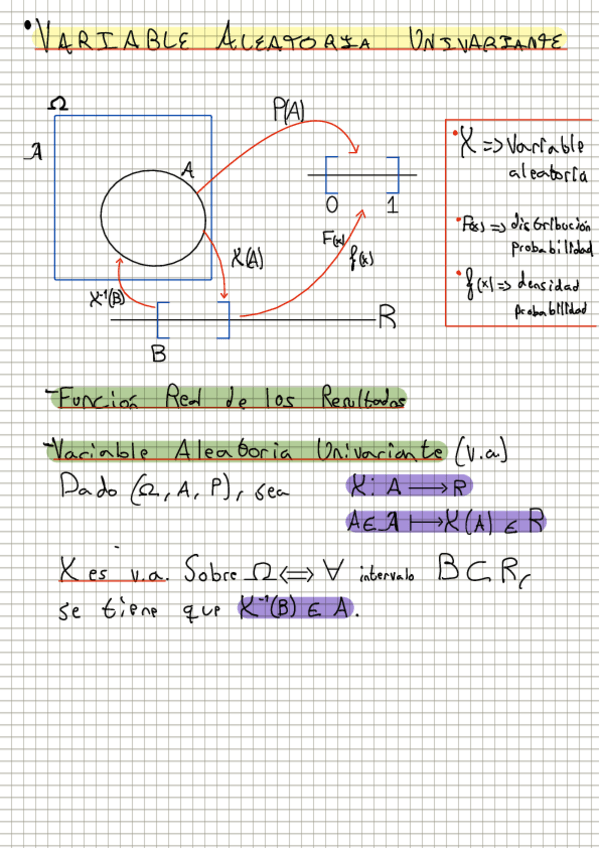 • VARIABLE ALEATORIA UNIVARIANTE
Ω
P(A)
A
A
0 1
F(x)
f(x)
X(A)
X⁻¹(B)
R
B
• X => Variable
aleatoria
• F(x) => distribución
probabilidad
• f(x) => densidad
probabilidad
- Función Real de los Resultados
- Variable Aleatoria Univariante (v.a)
Dado (Ω, A, P), sea X: A → R
A ∈ A ↦ X(A) ∈ R
X es v.a. Sobre Ω <=> ∀ intervalo B ⊂ R,
se tiene que X⁻¹(B) ∈ A.